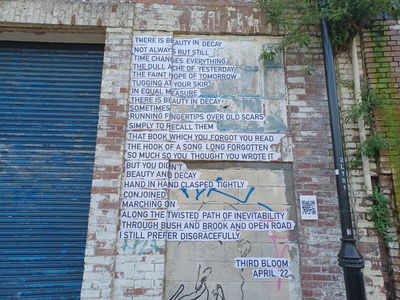 THERE IS BEAUTY IN DECAY
NOT ALWAYS BUT STILL
TIME CHANGES EVERYTHING
THE DULL ACHE OF YESTERDAY
THE FAINT HOPE OF TOMORROW
TUGGING AT YOUR SKIRT
IN EQUAL MEASURE
THERE IS BEAUTY IN DECAY
SOMETIMES
RUNNING FINGERTIPS OVER OLD SCARS
SIMPLY TO RECALL THEM
THAT BOOK WHICH YOU FORGOT YOU READ
THE HOOK OF A SONG LONG FORGOTTEN
SO MUCH SO YOU THOUGHT YOU WROTE IT
BUT YOU DIDN'T
BEAUTY AND DECAY
HAND IN HAND CLASPED TIGHTLY
CONJOINED
MARCHING ON
ALONG THE TWISTED PATH OF INEVITABILITY
THROUGH BUSH AND BROOK AND OPEN ROAD
I STILL PREFER DISGRACEFULLY
THIRD BLOOM
APRIL '22